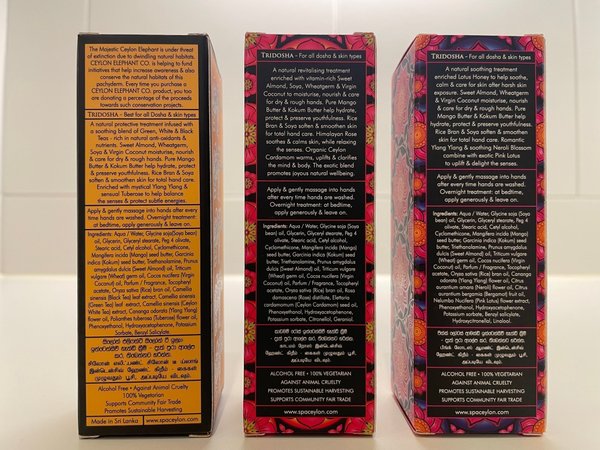 The Majestic Ceylon Elephant is under threat
of extinction due to dwindling natural habitats.
CEYLON ELEPHANT CO. is helping to fund
initiatives that help increase awareness & also
conserve the natural habitats of this
pachyderm. Every time you purchase a
CEYLON ELEPHANT CO. product, you too
are donating a percentage of the proceeds
towards such conservation projects.
TRIDOSHA - Best for all Dosha & skin types
A natural protective treatment infused with
a soothing blend of Green, White & Black
Teas - rich in natural anti-oxidants &
nutrients. Sweet Almond, Wheatgerm,
Soya & Virgin Coconut moisturise, nourish
& care for dry & rough hands. Pure Mango
Butter & Kokum Butter help hydrate, protect
& preserve youthfulness. Rice Bran & Soya
soften & smoothen skin for total hand care.
Enriched with mystical Ylang Ylang &
sensual Tuberose to help balance
the senses & protect subtle energies.
Apply & gently massage into hands
after every time hands are washed.
Overnight treatment: at bedtime,
apply generously & leave on.
Ingredients: Aqua / Water, Glycine soja(Soya
bean) oil, Glycerin, Glyceryl stearate, Peg 4
olivate, Stearic acid, Cetyl alcohol,
Cyclomethicone, Mangifera indica (Mango)
seed butter, Garcinia indica (Kokum) seed
butter, Triethanolamine, Prunus amygdalus
dulcis (Sweet Almond) oil, Triticum
vulgare (Wheat) germ oil, Cocos nucifera
(Virgin Coconut) oil, Parfum / Fragrance, Tocopheryl
acetate, Oryza sativa (Rice) bran oil, Camellia
sinensis (Black Tea) leaf extract, Camellia sinensis
(Green Tea) leaf extract, Camellia sinensis (Ceylon
White Tea) extract, Cananga odorata (Ylang Ylang)
flower oil, Polianthes tuberosa (Tuberose) flower oil,
Phenoxyethanol, Hydroxyacetophenone, Potassium
Sorbate, Benzyl Salicylate.
Alcohol Free • Against Animal Cruelty
100% Vegetarian
Supports Community Fair Trade
Promotes Sustainable Harvesting
Made in Sri Lanka
www.spaceylon.com
TRIDOSHA - For all dosha & skin types
A natural revitalising treatment
enriched with vitamin-rich Sweet
Almond, Soya, Wheatgerm & Virgin
Coconut to moisturise, nourish & care
for dry & rough hands. Pure Mango
Butter & Kokum Butter help hydrate,
protect & preserve youthfulness. Rice
Bran & Soya soften & smoothen skin
for total hand care. Himalayan Rose
soothes & calms skin, while relaxing
the senses. Organic Ceylon
Cardamom warms, uplifts & clarifies
the mind & body. The exotic blend
promotes joyous natural wellbeing.
Apply & gently massage into hands
after every time hands are washed.
Overnight treatment: at bedtime,
apply generously & leave on.
Ingredients: Aqua / Water, Glycine soja (Soya
bean) oil, Glycerin, Glyceryl stearate, Peg 4
olivate, Stearic acid, Cetyl alcohol,
Cyclomethicone, Mangifera indica (Mango)
seed butter, Garcinia indica (Kokum) seed
butter, Triethanolamine, Prunus amygdalus
dulcis (Sweet Almond) oil, Triticum vulgare
(Wheat) germ oil, Cocos nucifera (Virgin
Coconut) oil, Parfum / Fragrance, Tocopheryl
acetate, Oryza sativa (Rice) bran oil, Rosa
damascena (Rose) distillate, Elettaria
cardamomum (Ceylon Cardamom) seed oil,
Phenoxyethanol, Hydroxyacetophenone,
Potassium sorbate, Citronellol, Geraniol.
ALCOHOL FREE • 100% VEGETARIAN
AGAINST ANIMAL CRUELTY
PROMOTES SUSTAINABLE HARVESTING
SUPPORTS COMMUNITY FAIR TRADE
www.spaceylon.com
TRIDOSHA - For all dosha & skin types
A natural soothing treatment
enriched Lotus Honey to help soothe,
calm & care for skin after harsh skin
exposure. Sweet Almond, Wheatgerm
& Virgin Coconut moisturise, nourish
& care for dry & rough hands. Pure
Mango Butter & Kokum Butter help
hydrate, protect & preserve youthfulness.
Rice Bran & Soya soften & smoothen
skin for total hand care. Romantic
Ylang Ylang & soothing Neroli Blossom
combine with exotic Pink Lotus
to uplift & delight the senses.
Apply & gently massage into hands
after every time hands are washed.
Overnight treatment: at bedtime,
apply generously & leave on.
Ingredients: Aqua / Water, Glycine soja (Soya
bean) oil, Glycerin, Glyceryl stearate, Peg 4
olivate, Stearic acid, Cetyl alcohol,
Cyclomethicone, Mangifera indica (Mango)
seed butter, Garcinia indica (Kokum) seed
butter, Triethanolamine, Prunus amygdalus
dulcis (Sweet Almond) oil, Triticum vulgare
(Wheat) germ oil, Cocos nucifera (Virgin
Coconut) oil, Parfum / Fragrance, Tocopheryl
acetate, Oryza sativa (Rice) bran oil, Cananga
odorata (Ylang Ylang) flower oil, Citrus
aurantium amara (Neroli) flower oil, Citrus
aurantium bergamia (Bergamot) fruit oil,
Nelumbo Nucifera (Pink Lotus) flower extract,
Phenoxyethanol, Hydroxyacetophenone,
Potassium sorbate, Benzyl salicylate,
Hydroxycitronellal, Linalool.
ALCOHOL FREE • 100% VEGETARIAN
AGAINST ANIMAL CRUELTY
PROMOTES SUSTAINABLE HARVESTING
SUPPORTS COMMUNITY FAIR TRADE
www.spaceylon.com